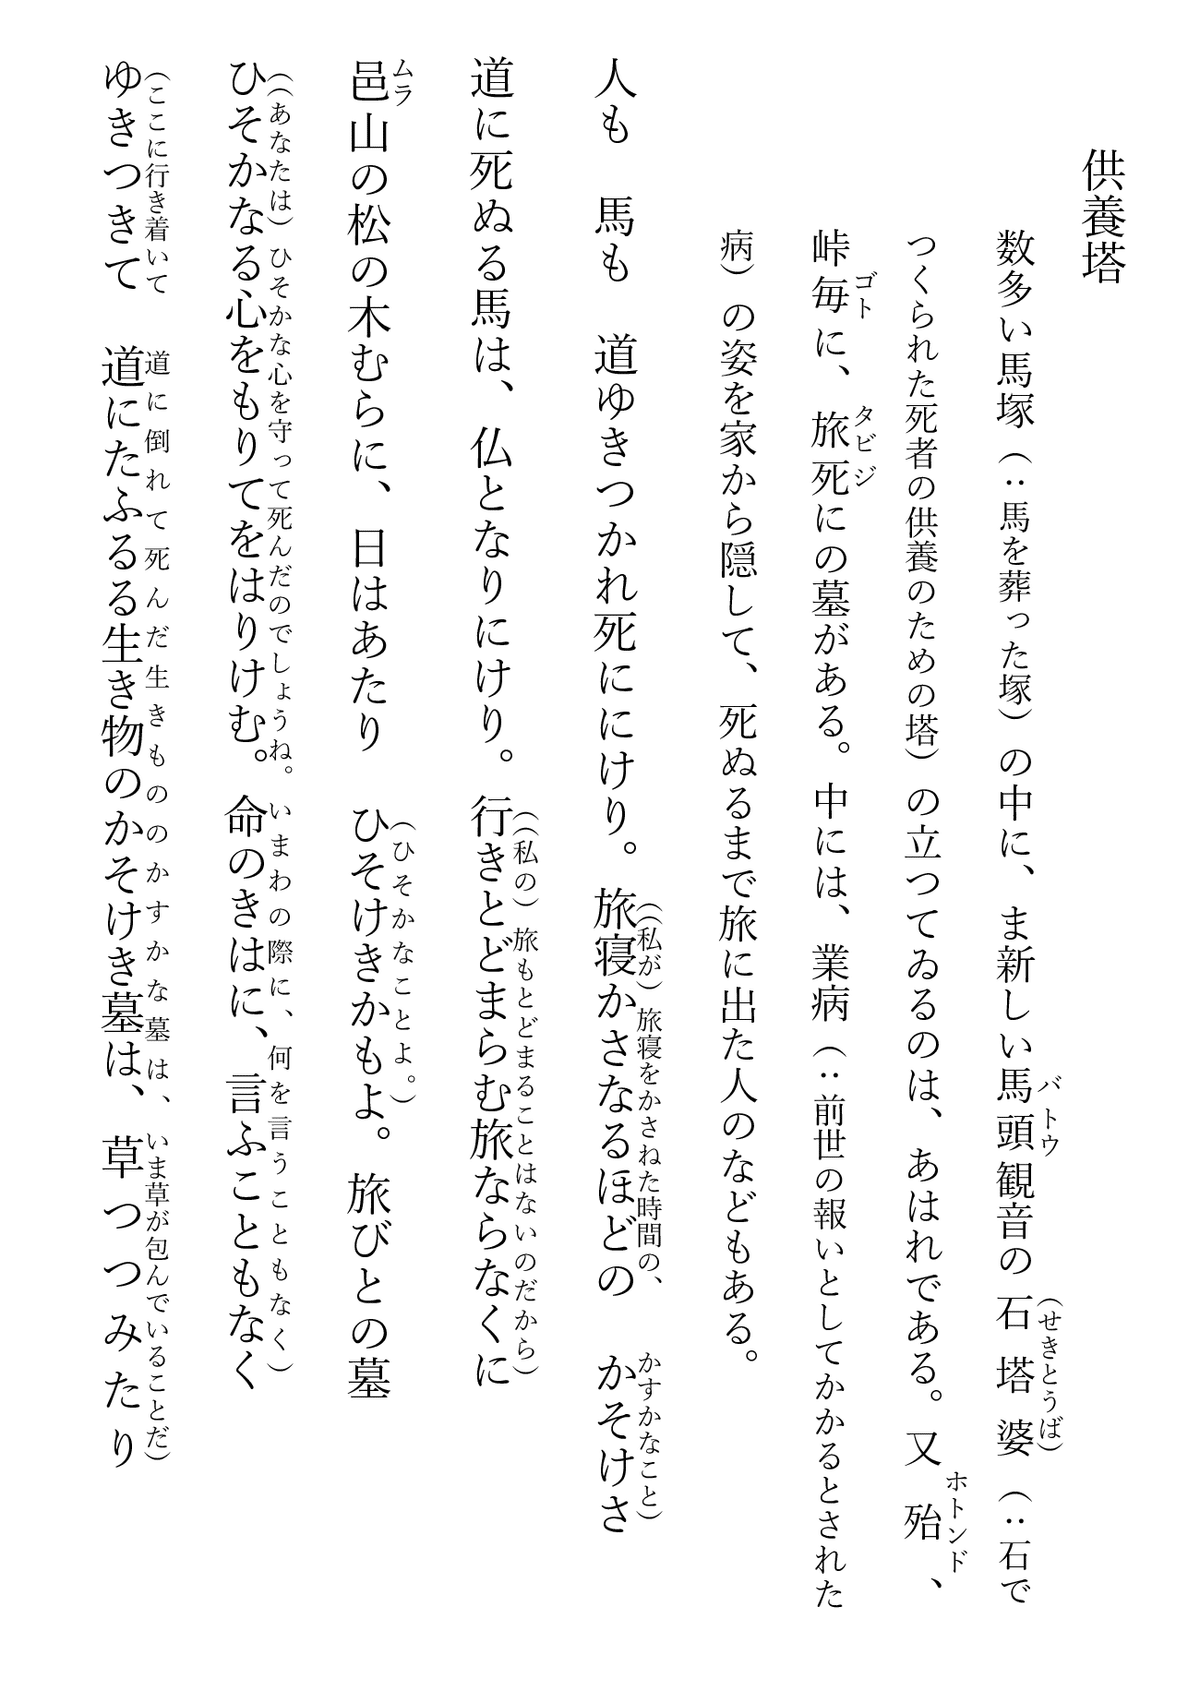 供養塔
数多い馬塚（：馬を葬った塚）の中に、ま新しい馬頭観音の石塔婆（：石で
バトウ
（せきとうば）
つくられた死者の供養のための塔）の立つてゐるのは、あはれである。又殆、
ホトンド
峠毎に、旅死にの墓がある。中には、業病（：前世の報いとしてかかるとされた
ゴト
タビジ
病）の姿を家から隠して、死ぬるまで旅に出た人のなどもある。
人も　馬も　道ゆきつかれ死ににけり。旅寝かさなるほどの　かそけさ
（（私が）旅寝をかさねた時間の、
かすかなこと）
道に死ぬる馬は、仏となりにけり。行きとどまらむ旅ならなくに
（（私の）旅もとどまることはないのだから）
邑山の松の木むらに、日はあたり　ひそけきかもよ。旅びとの墓
ムラ
（ひそかなことよ。）
ひそかなる心をもりてをはりけむ。命のきはに、言ふこともなく
（（あなたは）ひそかな心を守って死んだのでしょうね。いまわの際に、何を言うこともなく）
ゆきつきて　道にたふるる生き物のかそけき墓は、草つつみたり
（ここに行き着いて　道に倒れて死んだ生きもののかすかな墓は、いま草が包んでいることだ）